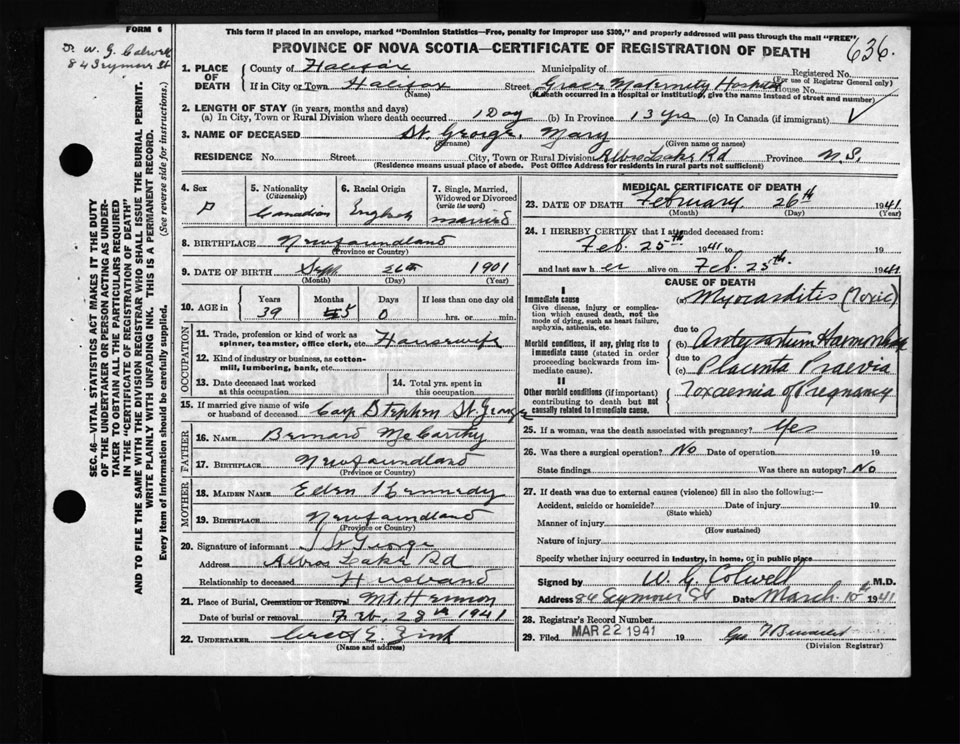 FORM 6
This form if placed in an envelope, marked "Dominion Statistics—Free, penalty for improper use $300," and properly addressed will pass through the mail "FREE"
PROVINCE OF NOVA SCOTIA—CERTIFICATE OF REGISTRATION OF DEATH
636.
Dr W. G. Colwell
84 Seymour St
SEC. 46—VITAL STATISTICS ACT MAKES IT THE DUTY
OF THE UNDERTAKER OR PERSON ACTING AS UNDER-
TAKER TO OBTAIN ALL THE PARTICULARS REQUIRED
IN THE "CERTIFICATE OF REGISTRATION OF DEATH"
AND TO FILE THE SAME WITH THE DIVISION REGISTRAR WHO SHALL ISSUE THE BURIAL PERMIT.
(See reverse side for instructions.)
WRITE PLAINLY WITH UNFADING INK. THIS IS A PERMANENT RECORD.
Every item of information should be carefully supplied.
1. PLACE OF DEATH
County of Halifax Municipality of Registered No.
(For use of Registrar General only)
If in City or Town Halifax Street Grace Maternity Hospital House No.
(Name) (If death occurred in a Hospital or institution, give the name instead of street and number)
2. LENGTH OF STAY (in years, months and days)
(a) In City, Town or Rural Division where death occurred 1 Day (b) In Province 13 yrs (c) In Canada (if immigrant)
3. NAME OF DECEASED St. George, Mary
(Surname) (Given name or names)
RESIDENCE No. Street City, Town or Rural Division Albro Lake Rd Province N.S.
(Residence means usual place of abode. Post Office Address for residents in rural parts not sufficient)
4. Sex
5. Nationality (Citizenship) Canadian
6. Racial Origin English
7. Single, Married, Widowed or Divorced (write the word) married
8. BIRTHPLACE Newfoundland
(Province or Country)
9. DATE OF BIRTH Sept. 26th 1901
(Month) (Day) (Year)
10. AGE in Years 39 Months 5 Days 0 If less than one day old hrs. or min.
OCCUPATION
11. Trade, profession or kind of work as spinner, teamster, office clerk, etc. Housewife
12. Kind of industry or business, as cotton-mill, lumbering, bank, etc.
13. Date deceased last worked at this occupation
14. Total yrs. spent in this occupation
15. If married give name of wife or husband of deceased Corp Stephen St. George
FATHER
16. NAME Bernard McCarthy
17. BIRTHPLACE Newfoundland
(Province or Country)
MOTHER
18. MAIDEN NAME Ellen Kennedy
19. BIRTHPLACE Newfoundland
(Province or Country)
20. Signature of informant S St George
Address Albros Lake Rd
Relationship to deceased Husband
21. Place of Burial, Cremation or Removal Mt. Hermon
Date of burial or removal Feb. 28th 1941
22. UNDERTAKER E. Zink
(Name and address)
MEDICAL CERTIFICATE OF DEATH
23. DATE OF DEATH February 26th 1941
(Month) (Day) (Year)
24. I HEREBY CERTIFY that I attended deceased from:
Feb. 25th 1941 to 19
and last saw her alive on Feb. 25th 1941
CAUSE OF DEATH
I
Immediate cause
Give disease, injury or complication which caused death, not the mode of dying, such as heart failure, asphyxia, asthenia, etc.
(a) Myocarditis (Toxic)
due to
Morbid conditions, if any, giving rise to immediate cause (stated in order proceeding backwards from immediate cause).
(b) Antepartum Haemorrhage
due to
(c) Placenta Praevia
II
Other morbid conditions (if important) contributing to death but not causally related to immediate cause.
Toxaemia of Pregnancy
25. If a woman, was the death associated with pregnancy? Yes
26. Was there a surgical operation? No Date of operation 19
State findings Was there an autopsy? No
27. If death was due to external causes (violence) fill in also the following:—
Accident, suicide or homicide? Date of injury 19
(State which)
Manner of injury
(How sustained)
Nature of injury
Specify whether injury occurred in industry, in home, or in public place
Signed by W. G. Colwell M.D.
Address 84 Seymour St Date March 10th 1941
28. Registrar's Record Number
29. Filed MAR 22 1941 19
(Division Registrar)